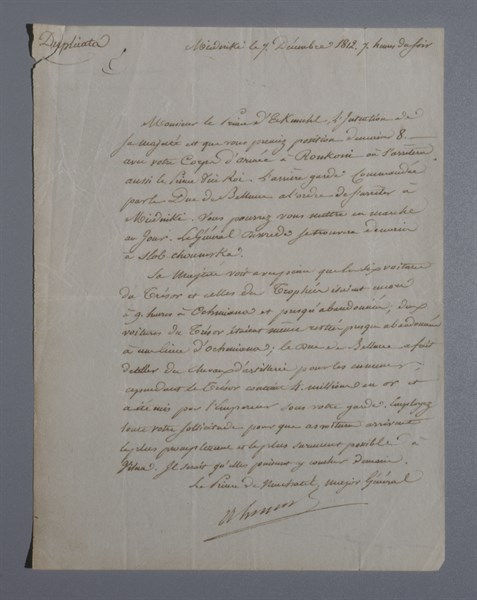 Duplicata
Miedniki le 7 Décembre 1812, 7 heures du soir
Monsieur le Prince d'Eckmuhl, l'intention de
sa majesté est que vous preniez position demain 8.
avec votre Corps d'armée à Roukoni où s'arrêtera
aussi le Prince Vice Roi. L'arrière garde Commandée
par le Duc de Bellune a l'ordre de s'arrêter à
Miedniki. Vous pourrez vous mettre en marche
au Jour. Le Général se trouvera demain
à Slob
Sa Majesté voit avec peine que les voitures
du Trésor et celles des Trophées étaient encore
à 9 heures à Ochmiana et presqu'abandonnées; deux
voitures du Trésor étaient même restées presque abandonnées
à une lieue d'Ochmiana; le Duc de Bellune a fait
dételer des chevaux d'artillerie pour les emmener;
cependant le Trésor contient 4. millions en or et
a été mis par l'Empereur sous votre garde. Employez
toute votre sollicitude pour que ces voitures arrivent
le plus promptement et le plus sûrement possible à
Vilna. Il serait qu'elles pussent y coucher demain.
Le Prince de Neuchatel, major Général